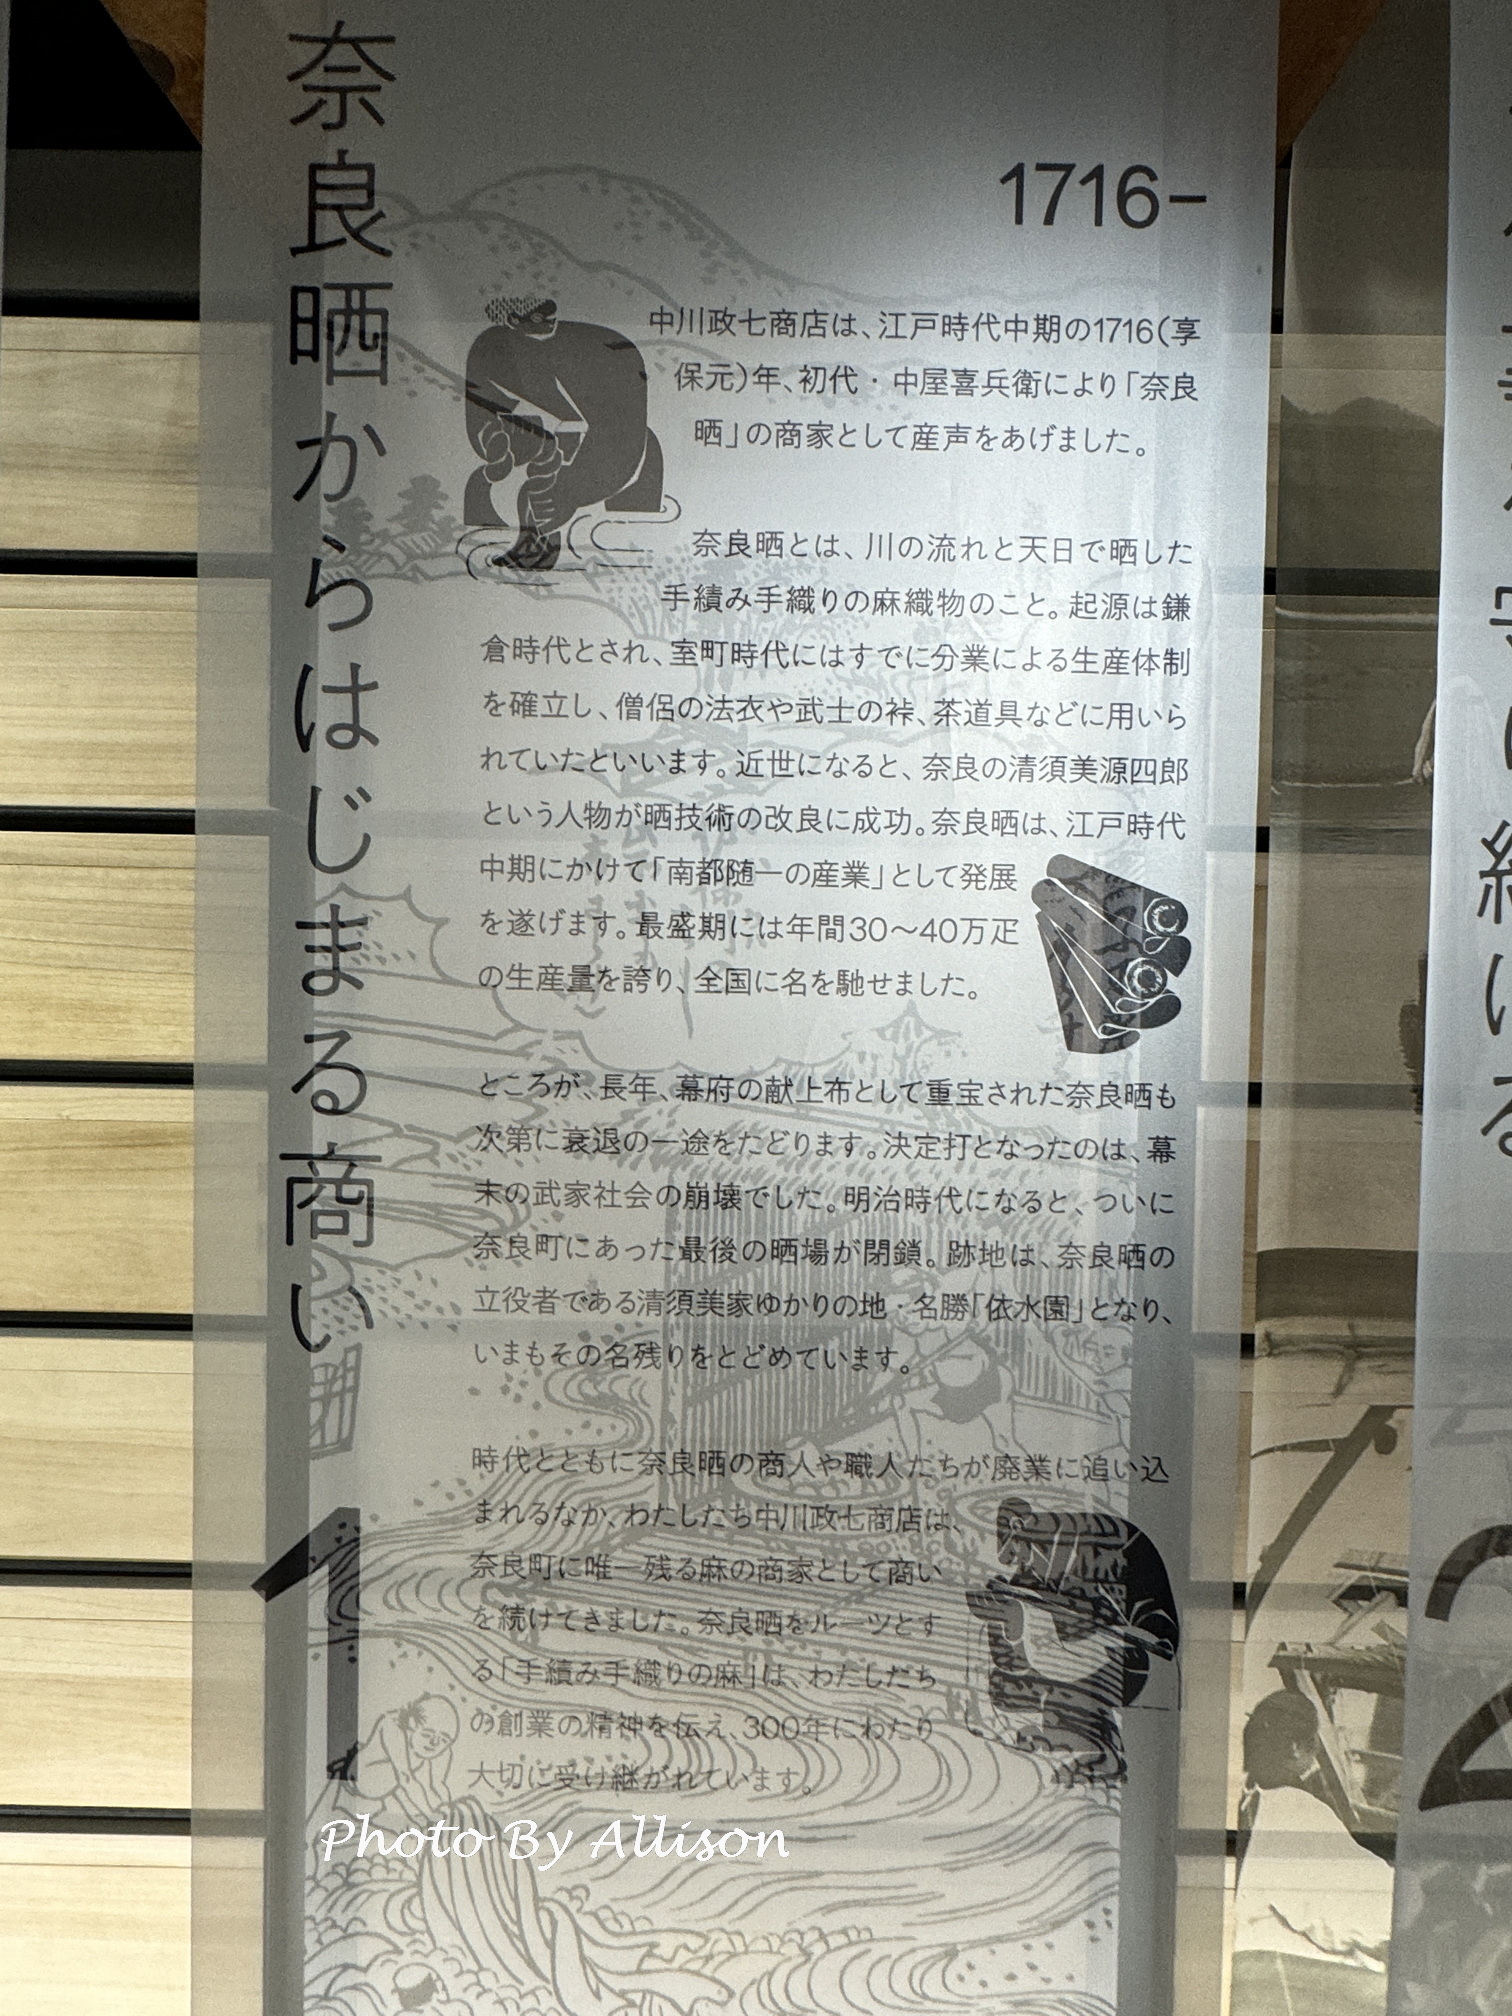 奈良晒からはじまる商い
1716–
中川政七商店は、江戸時代中期の1716(享
保元)年、初代・中屋喜兵衛により「奈良
晒」の商家として産声をあげました。
奈良晒とは、川の流れと天日で晒した
手績み手織りの麻織物のこと。起源は鎌
倉時代とされ、室町時代にはすでに分業による生産体制
を確立し、僧侶の法衣や武士の裃、茶道具などに用いら
れていたといいます。近世になると、奈良の清須美源四郎
という人物が晒技術の改良に成功。奈良晒は、江戸時代
中期にかけて「南都随一の産業」として発展
を遂げます。最盛期には年間30〜40万疋
の生産量を誇り、全国に名を馳せました。
ところが、長年、幕府の献上布として重宝された奈良晒も
次第に衰退の一途をたどります。決定打となったのは、幕
末の武家社会の崩壊でした。明治時代になると、ついに
奈良町にあった最後の晒場が閉鎖。跡地は、奈良晒の
立役者である清須美家ゆかりの地・名勝「依水園」となり、
いまもその名残りをとどめています。
時代とともに奈良晒の商人や職人たちが廃業に追い込
まれるなか、わたしたち中川政七商店は、
奈良町に唯一残る麻の商家として商い
を続けてきました。奈良晒をルーツとす
る「手績み手織りの麻」は、わたしたち
の創業の精神を伝え、300年にわたり
大切に受け継がれています。
1
Photo By Allison
2